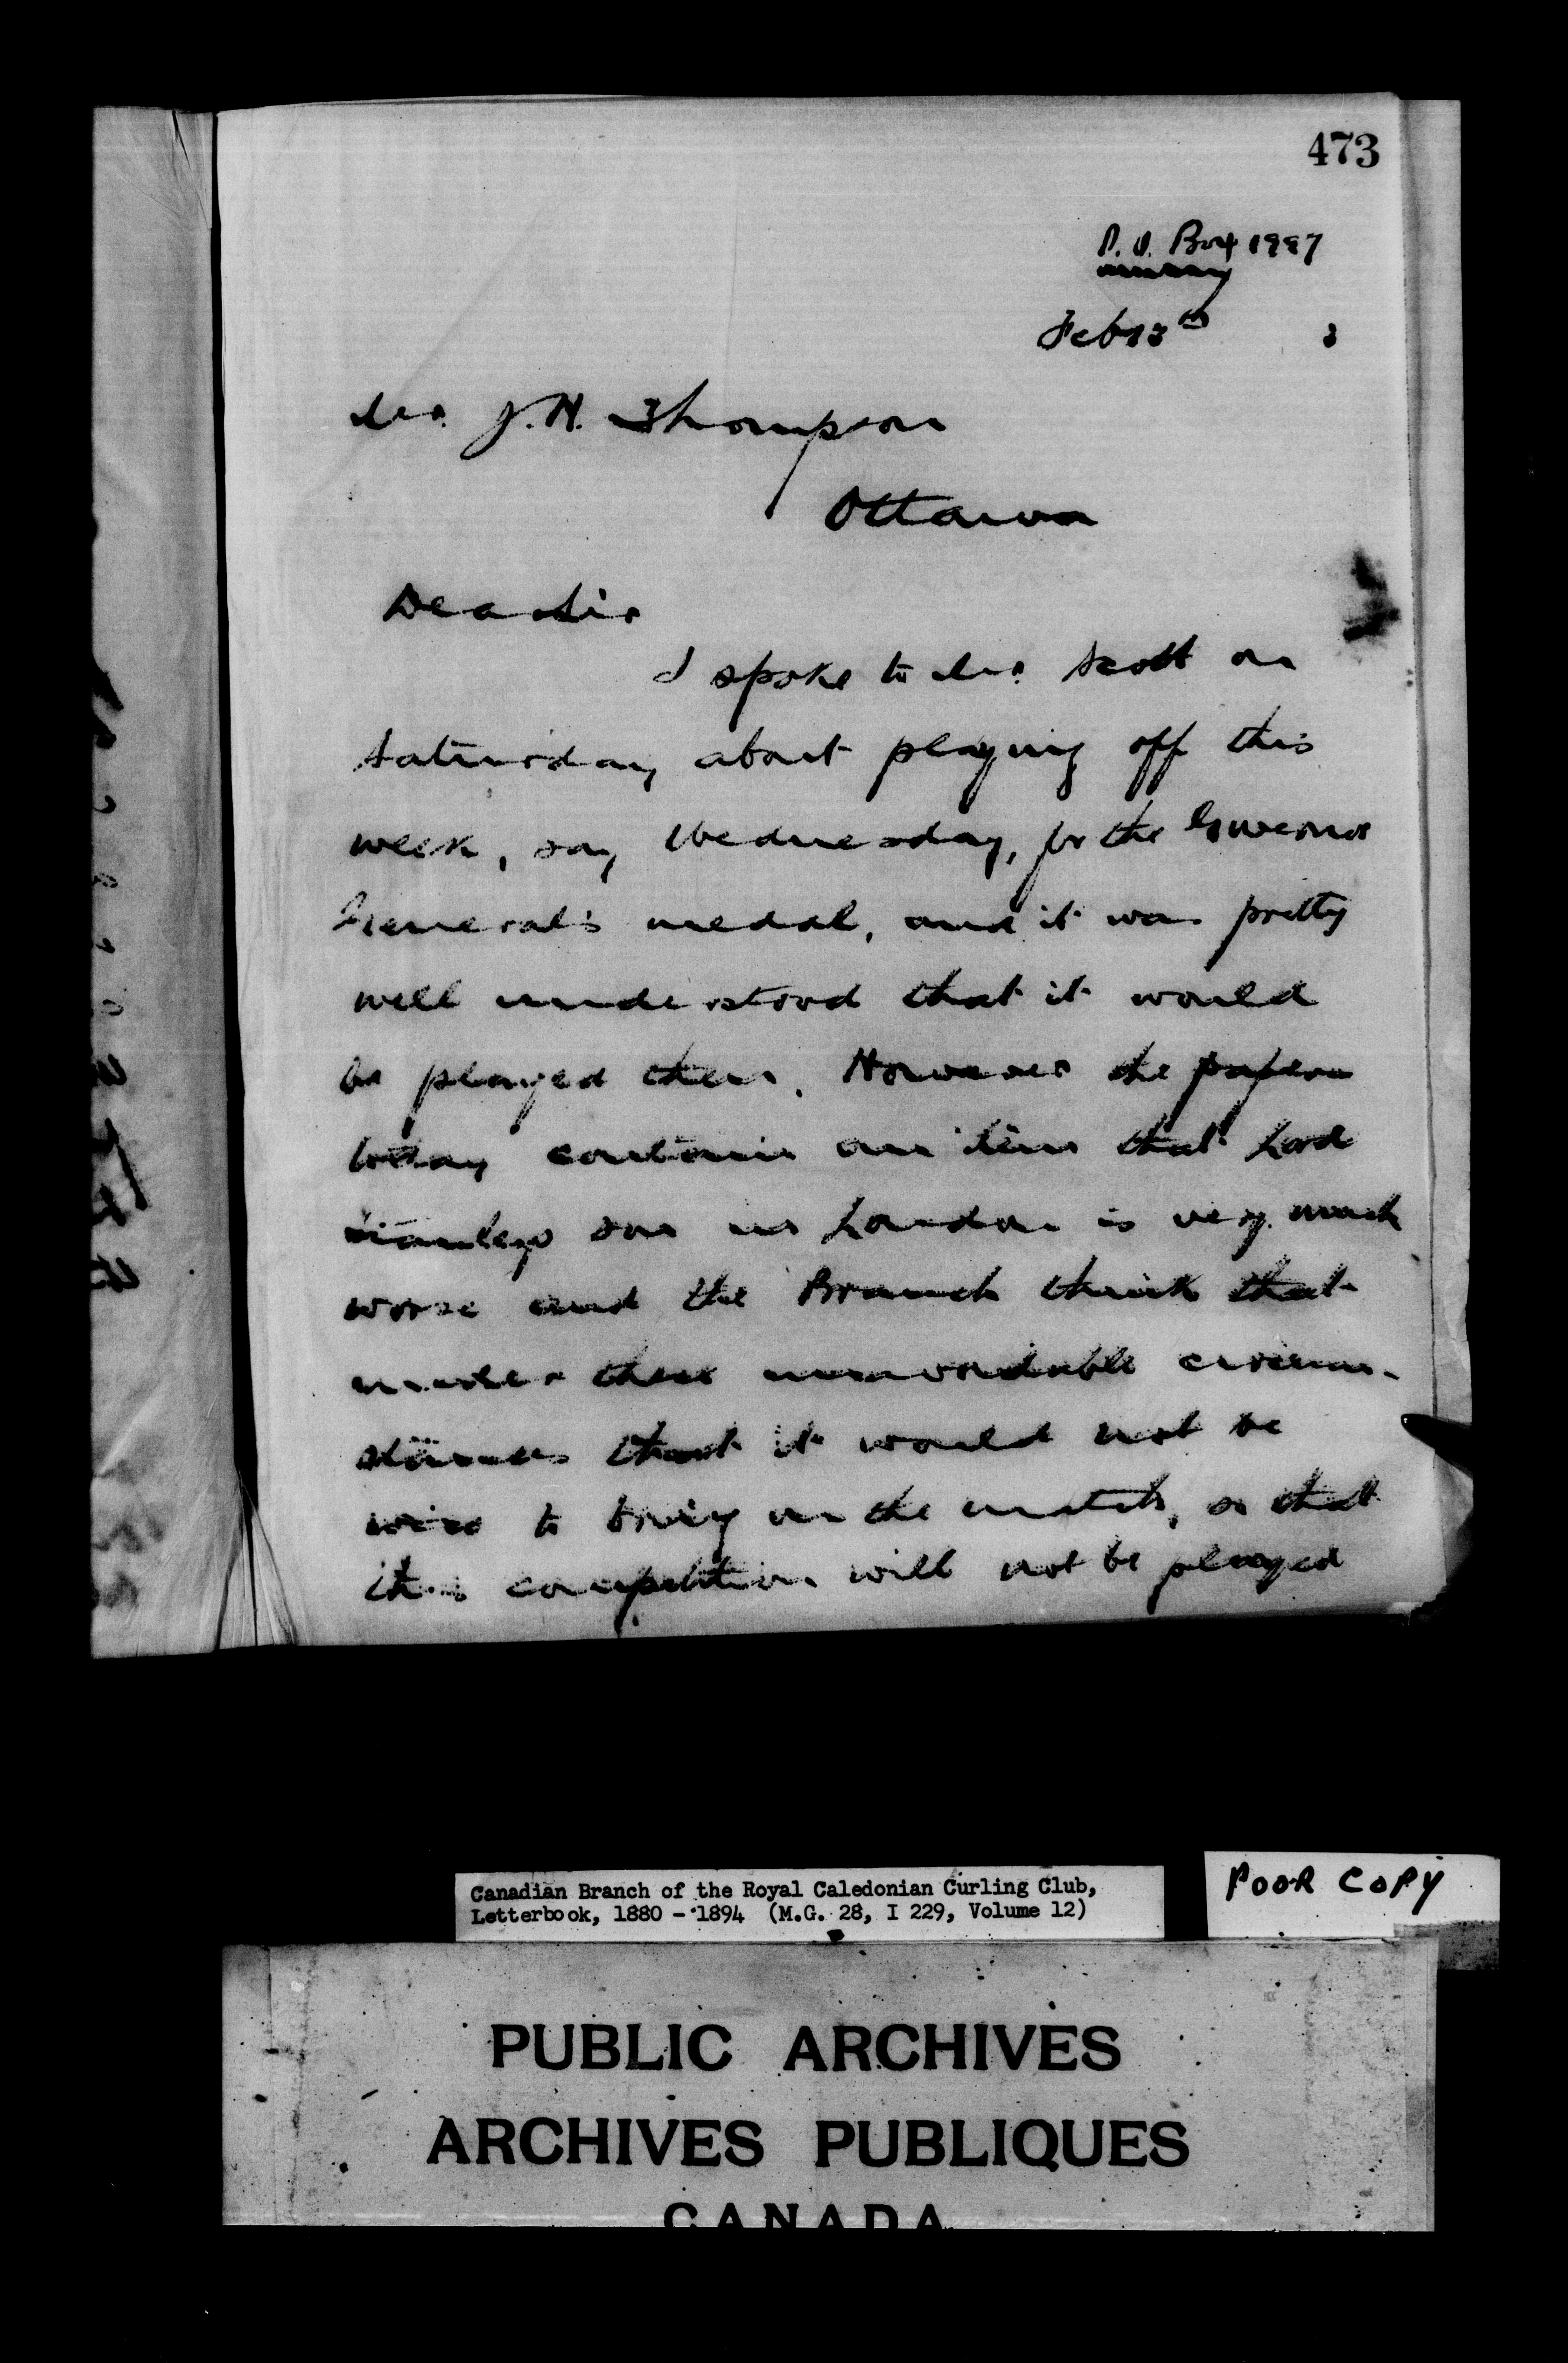 473
P. O. Box 1997
Feb 13th 3
Mr. J. H. Thompson
Ottawa
Dear Sir
I spoke to Mr. Scott on
Saturday about playing off this
week, say Wednesday, for the Governor
General's medal, and it was pretty
well understood that it would
be played then. However the papers
today contain an item that Lord
Stanleys son in London is very much
worse and the Branch think that
under these unavoidable circum-
stances that it would not be
wise to bring on the match, so that
this competition will not be played
Canadian Branch of the Royal Caledonian Curling Club,
Letterbook, 1880 - 1894 (M.G. 28, I 229, Volume 12)
POOR COPY
PUBLIC ARCHIVES
ARCHIVES PUBLIQUES
CANADA